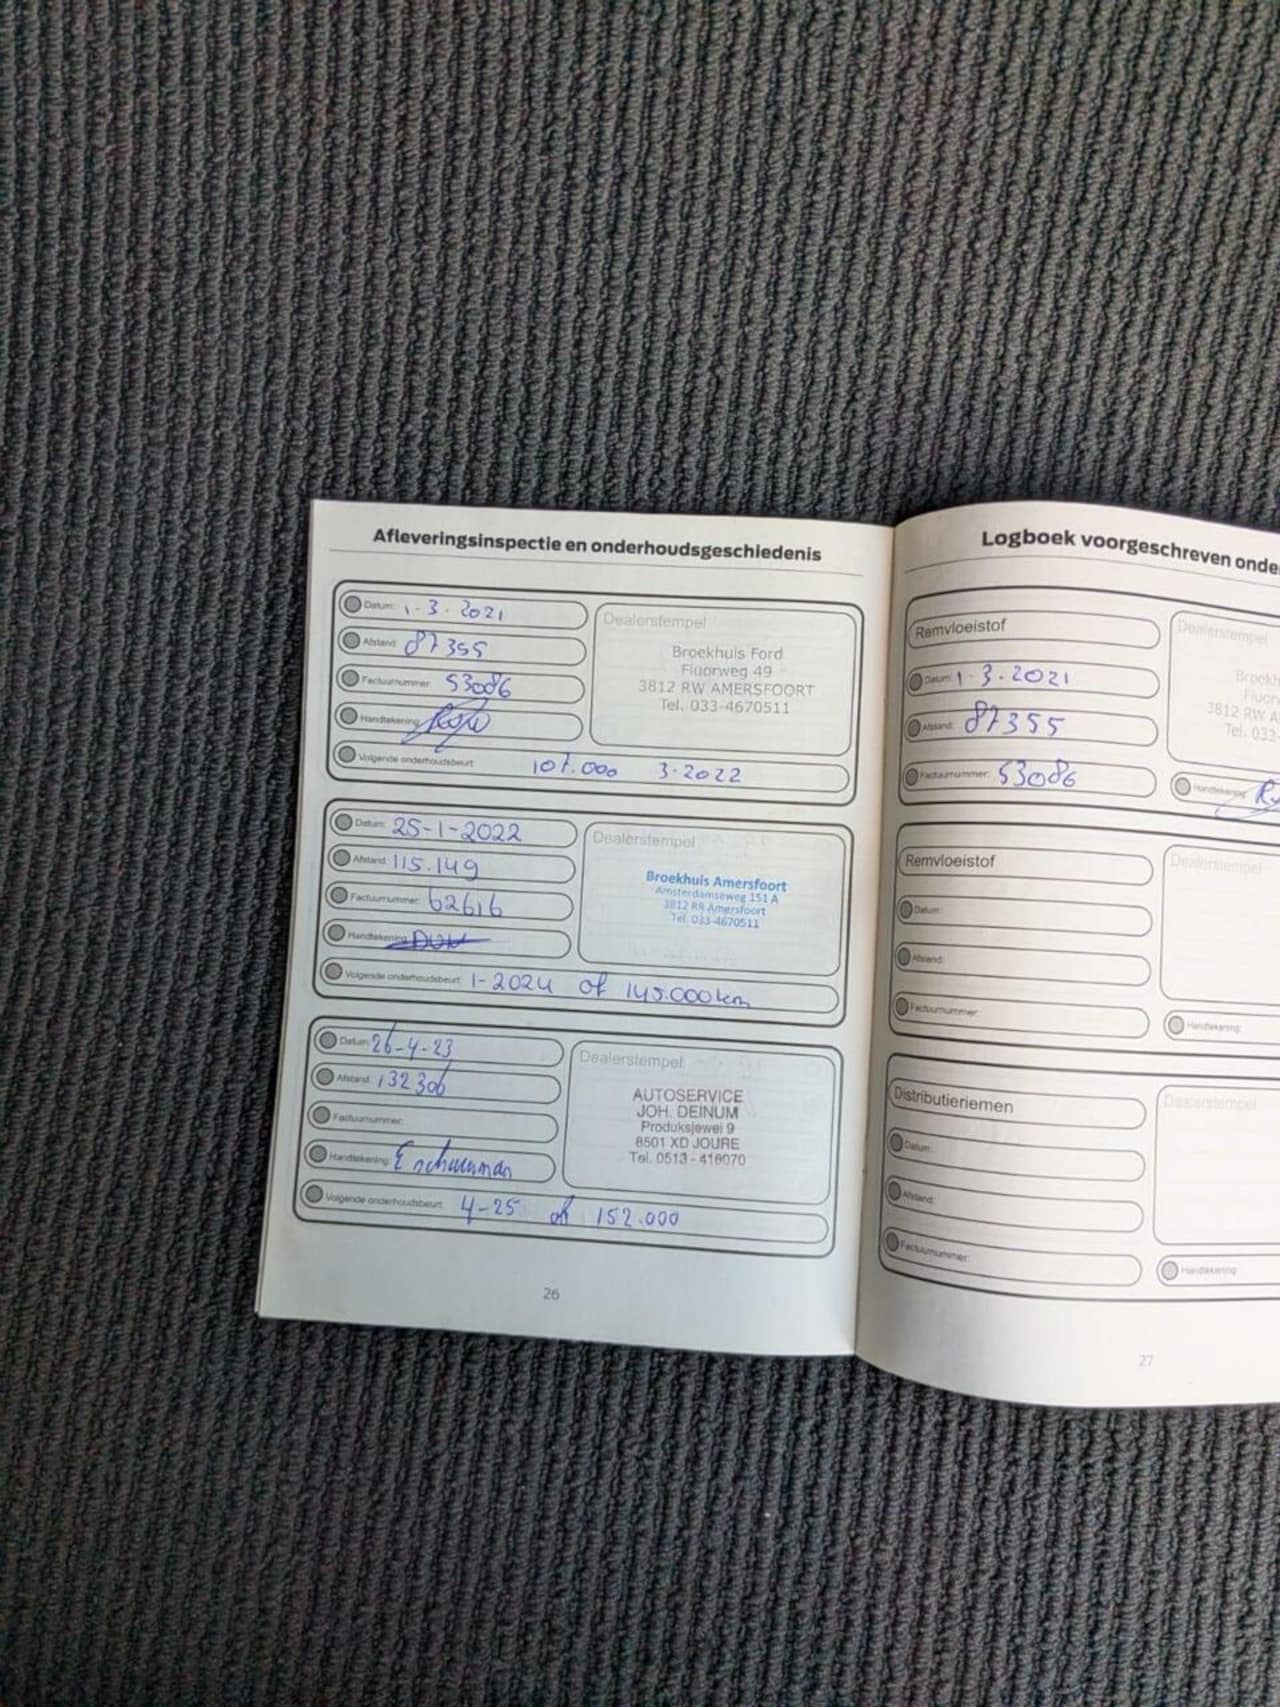 Afleveringsinspectie en onderhoudsgeschiedenis
Datum: 1-3-2021
Afstand: 87355
Factuurnummer: 53086
Handtekening:
Volgende onderhoudsbeurt 107.000 3-2022
Dealerstempel
Broekhuis Ford
Fluorweg 49
3812 RW AMERSFOORT
Tel. 033-4670511
Datum: 25-1-2022
Afstand: 115.149
Factuurnummer: 62616
Handtekening:
Volgende onderhoudsbeurt: 1-2024 of 145.000km
Dealerstempel
Broekhuis Amersfoort
Amsterdamseweg 151 A
3812 RR Amersfoort
Tel. 033-4670511
Datum: 26-4-23
Afstand: 132306
Factuurnummer:
Handtekening:
Volgende onderhoudsbeurt: 4-25 of 152.000
Dealerstempel
AUTOSERVICE
JOH. DEINUM
Produksjewei 9
8501 XD JOURE
Tel. 0513 - 416070
26
Logboek voorgeschreven onde
Remvloeistof
Datum: 1-3-2021
Afstand: 87355
Factuurnummer: 53086
Dealerstempel
Broekh
Fluor
3812 RW A
Tel. 033-
Handtekening:
Remvloeistof
Datum:
Afstand:
Factuurnummer:
Dealerstempel
Handtekening:
Distributieriemen
Datum:
Afstand:
Factuurnummer:
Dealerstempel
Handtekening:
27